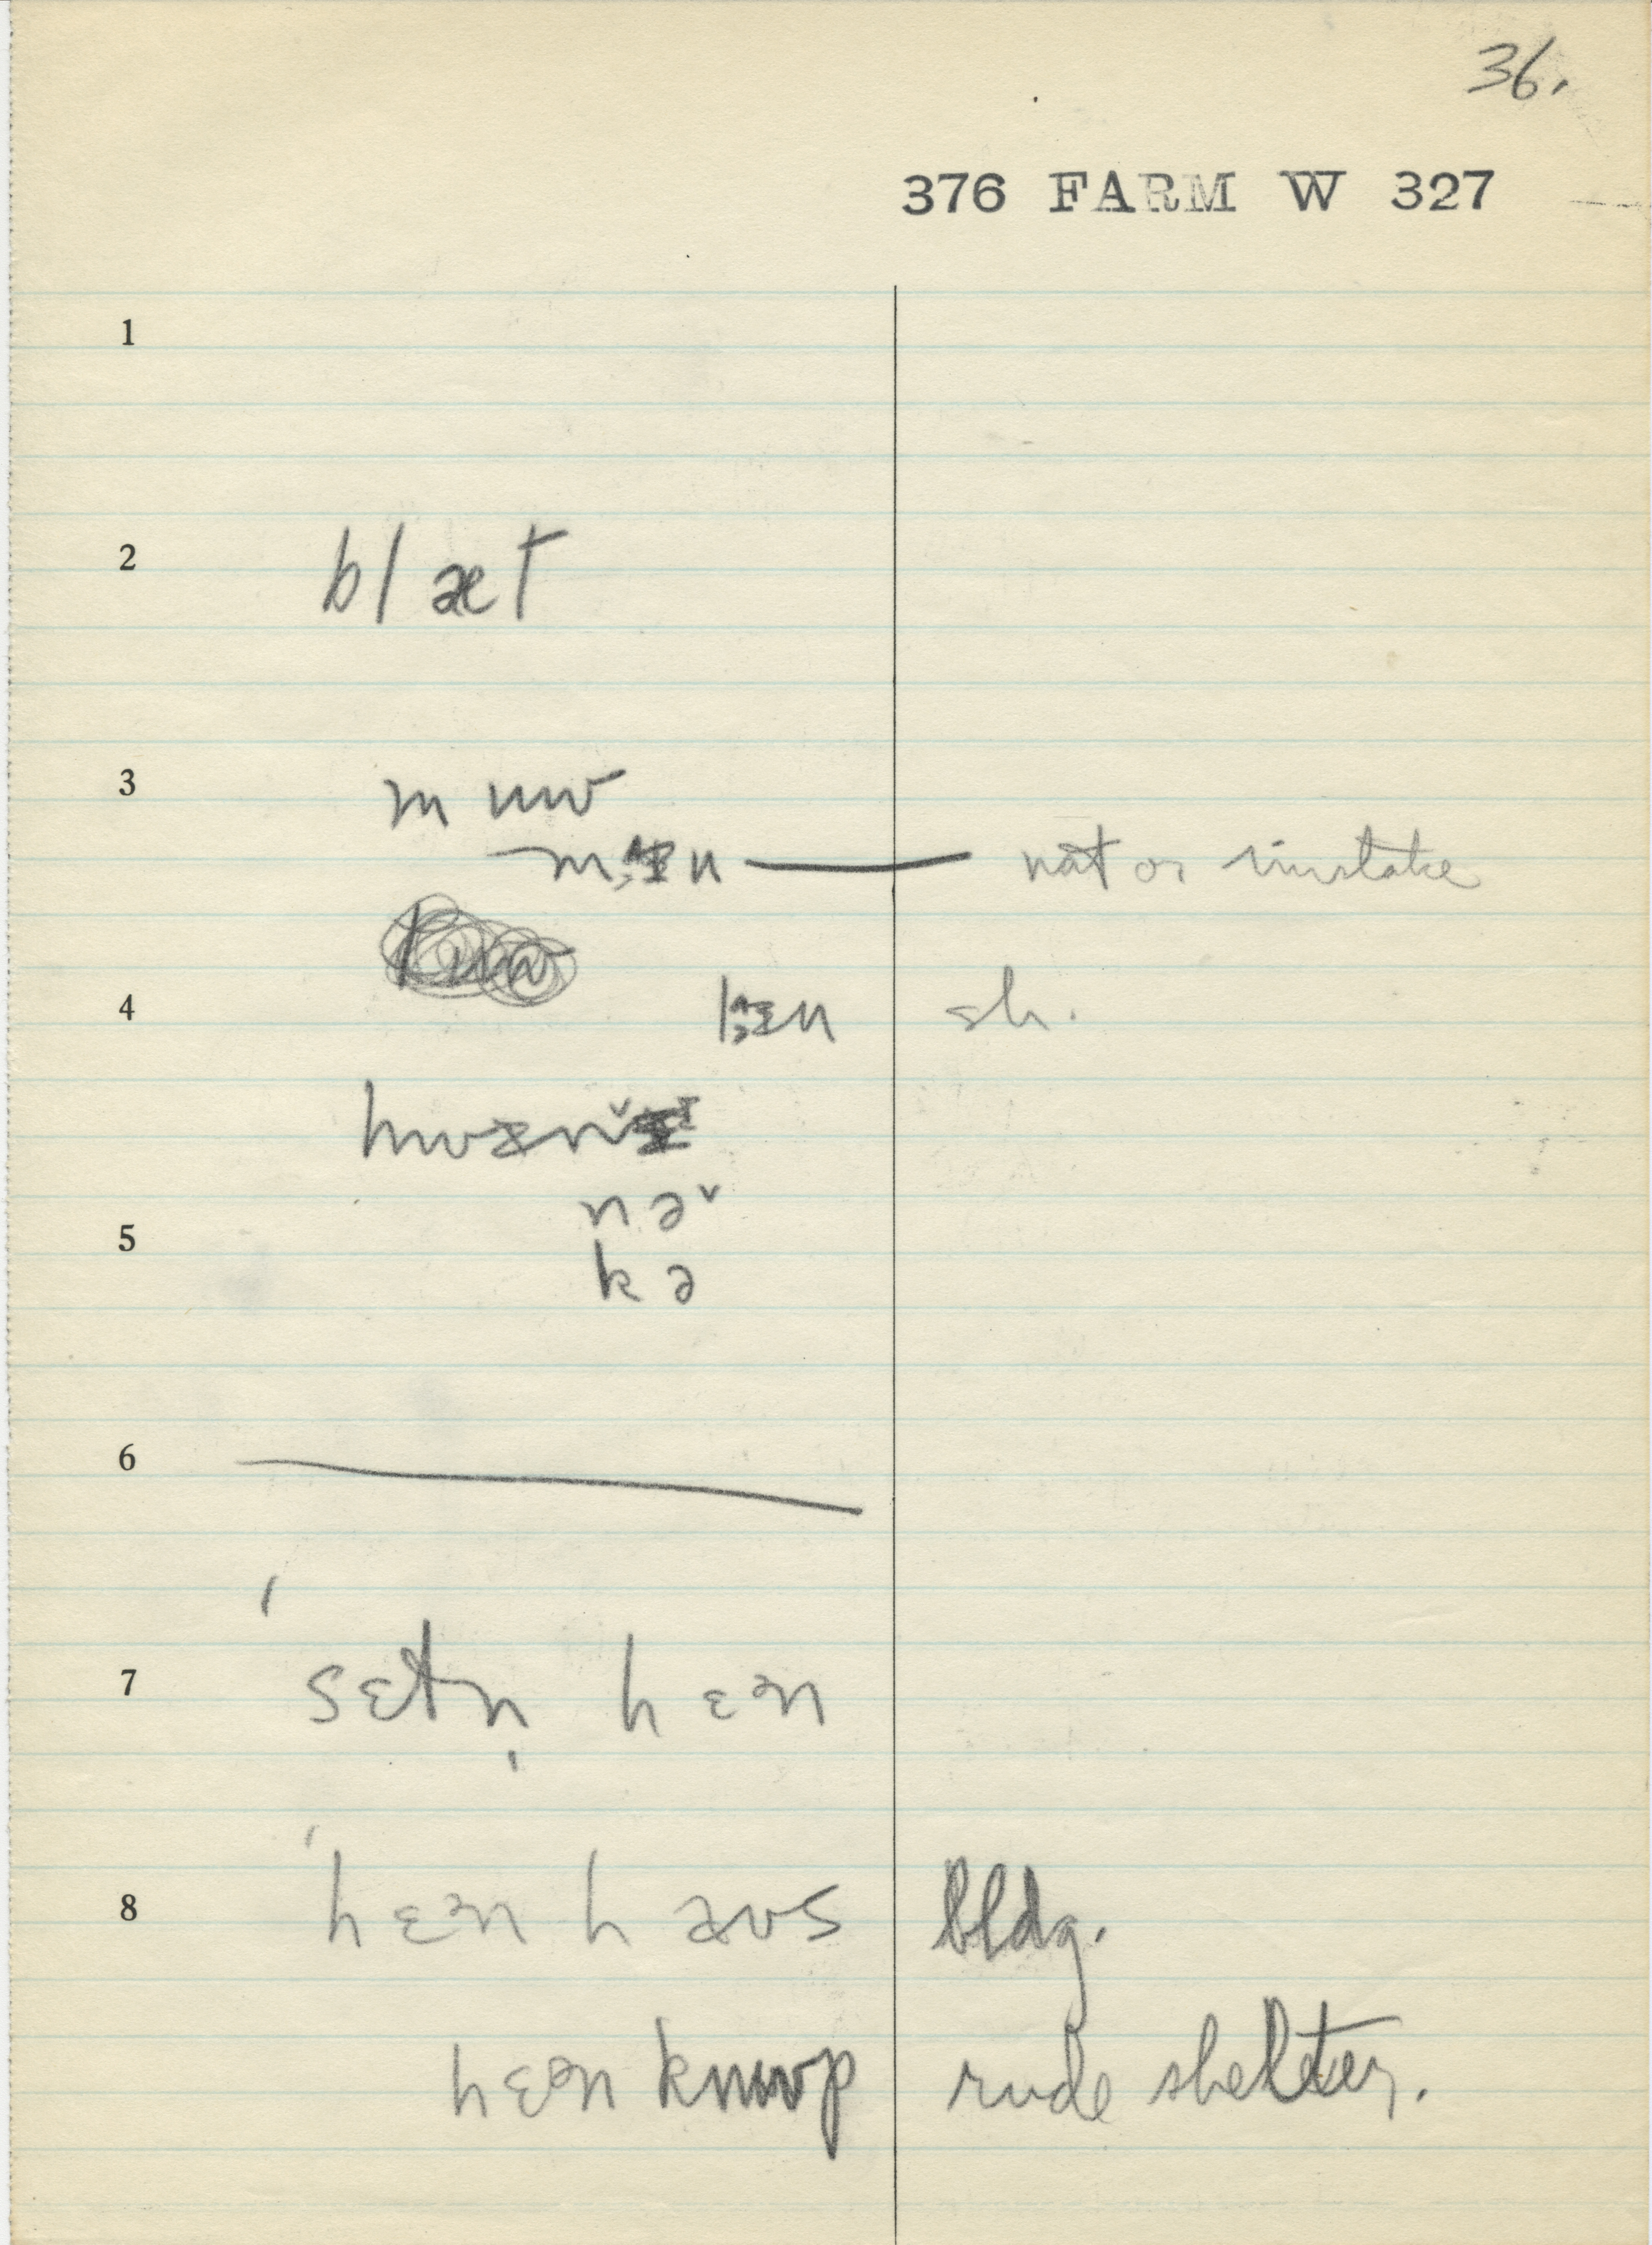 36.
376 FARM W 327
1
2 blæt
3 m ɯʊ
nat or mistake
4
sh.
nəˇ
5
kə
6
7 ˈsɛtn̩ hɛᵊn
8 ˈhɛᵊn haʊs bldg.
hɛᵊn kɯʊp rude shelter.